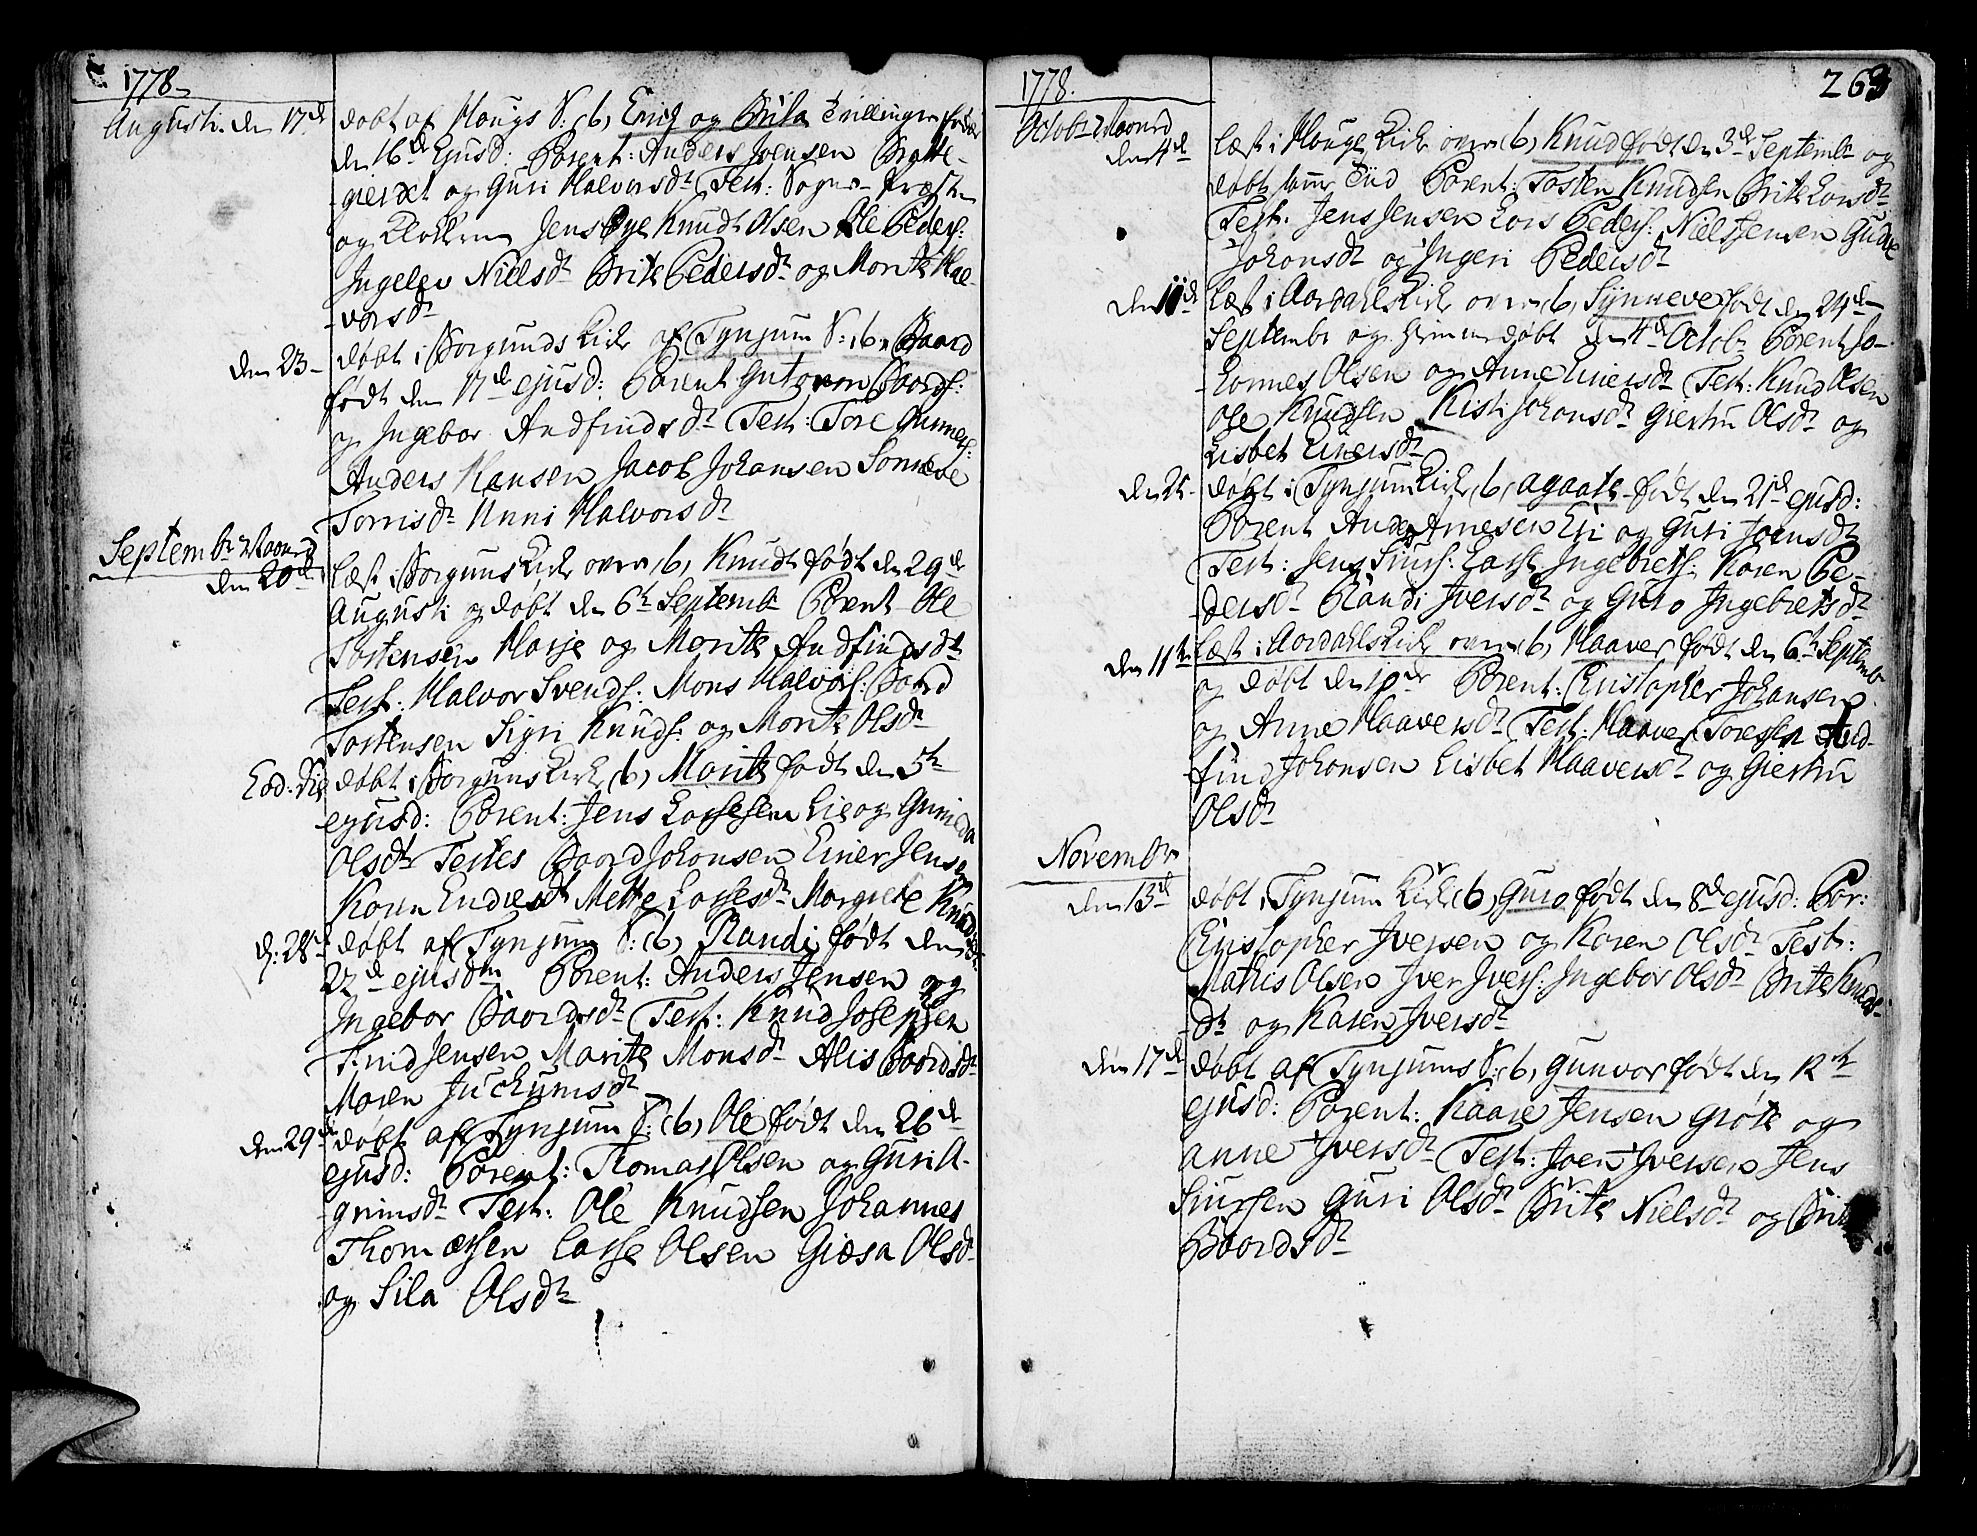 1778
Augusti den 17de døbt af Hougs S: (b, Erick og Brita Tvillinger
den 16de Ejusd: Parent: Anders Joensen Bratte-
-gierdet og Guri Halvorsdtr Test: Sogne-Præsten
og Klokkeren Jens Øye Knudt Olsen Ole Peders:
Ingelev Nielsdtr Brite Pedersdtr og Marite Hal-
-vorsdtr
den 23 døbt i Borgunds Kirke af Tynjum S: (b, Baard
født den 17de ejusd: Parent Gutorm Baards:
og Ingebor Andfindsdtr Test: Tore Gunners:
Anders Hansen Jacob Johansen Sonneve
Torrisdtr Unni Halvorsdtr
Septembr Maaned
den 20de læst i Borguns Kirke over (b, Knudt født den 29de
Augusti og døbt den 6te Septembr Parent Ole
Tostensen Hause og Marite Andfindsdtr
Test: Halvor Svends: Mons Halvors: Baard
Tostensen Sigri Knuds: og Marite Olsdtr
Eod: die døbt i Borguns Kirke (b, Marite født den 5te
ejusd: Parent: Jens Lassesen Lie og Gunilda
Olsdtr Testes Baard Johansen Einer Jensen
Karen Endresdtr Mette Lassesdtr Margrete Knudsdtr
d: 28de døbt af Tynjum S: (b, Randi født den
22de ejusdm Parent: Anders Jensen og
Ingebor Baardsdtr Test: Knud Josephsen
Knud Jensen Marite Monsdtr Alis Baardsdtr
Maren Juchumsdtr
den 29de døbt af Tynjum S: (b, Ole født den 26de
ejusd: Parent: Thomas Olsen og Guri A-
-grimsdtr Test: Ole Knudsen Johannes
Thomæssen Lasse Olsen Giøsa Olsdtr
og Sila Olsdtr
1778.
263
Octobr Maaned
den 4de læst i Houge Kirke over (b, Knud født den 3de Septembr og
døbt samme Tiid Parent: Tosten Knudsen Brite Larsdtr
Test: Jens Jensen Lars Peders: Niels Jensen Gudve
Johansdtr og Ingeri Pedersdtr
den 11de læst i Aardahls Kirke over (b, Synneve født den 24de
Septembr og hjemmedøbt den 4de Octobr Parent Jo-
-hannes Olsen og Anne Einersdtr Test: Knud Olsen
Ole Knudsen Kisti Johansdtr Giertru Olsdtr og
Lisbet Einersdtr
den 25 døbt i Tynjum Kirke (b, Agaate født den 21de ejusd:
Parent Anders Arnesen Eri og Guri Joensdtr
Test: Jens Siurs: Lasse Ingebrets: Karen Pe-
dersdtr Randi Iversdtr og Guro Ingebretsdtr
den 11te læst i Aardahls Kirke over (b, Haaver født den 6te Septemb
og døbt den 10de Parent: Christopher Johansen
og Anne Haaversdtr Test: Haaver Toresen And-
find Johansen Lisbet Haaversdtr og Giertru
Olsdtr
Novembr
den 13de døbt i Tynjum Kirke (b, Guro født den 8de ejusd: Par:
Christopher Iversen og Karen Olsdtr Test:
Mathis Olsen Iver Ivers: Ingebor Olsdtr Brite Knuds-
dtr og Karen Iversdtr
den 17de døbt af Tynjums S: (b, Gunvor født den 12te
ejusd: Parent: Kaare Jensen Grøte og
Anne Iversdtr Test: Joen Iversen Jens
Siursen Guri Olsdtr Brite Nielsdtr og Brite
Baardsdtr